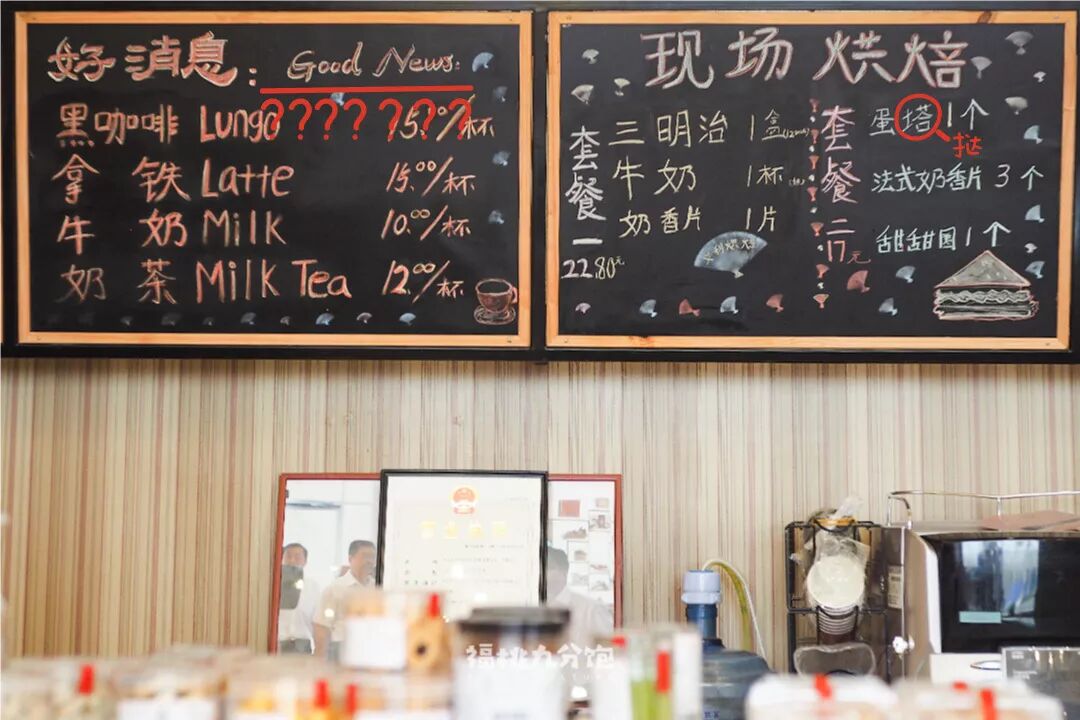 好消息: Good News:
???? ???
黑咖啡 Lungo 15.00/杯
拿铁 Latte 15.00/杯
牛奶 Milk 10.00/杯
奶茶 Milk Tea 12.00/杯
现场烘焙
套餐一
22.80元
三明治 1盒
牛奶 1杯
奶香片 1片
套餐二
17元
蛋塔 1个
挞
法式奶香片 3个
甜甜圈 1个
福桃九分饱